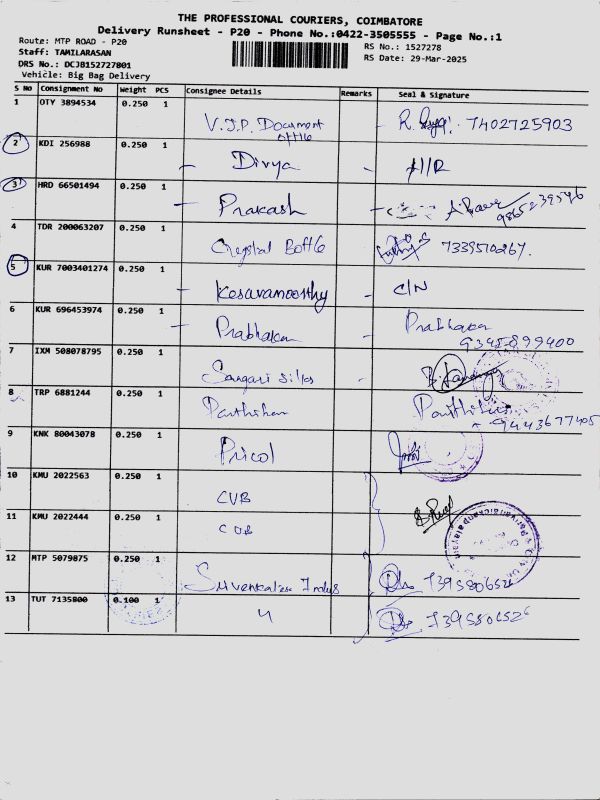 THE PROFESSIONAL COURIERS, COIMBATORE
Delivery Runsheet - P20 - Phone No.:0422-3505555 - Page No.:1
Route: MTP ROAD - P20 RS No.: 1527278
Staff: TAMILARASAN RS Date: 29-Mar-2025
DRS No.: DCJB152727801
Vehicle: Big Bag Delivery
S No Consignment No Weight PCS Consignee Details Remarks Seal & Signature
1 OTY 3894534 0.250 1 V.J.P. Document 7402725903
2 KDI 256988 0.250 1 Divya H/R
3 HRD 66501494 0.250 1 Prakash
4 TDR 200063207 0.250 1 Crystal 7339510267.
5 KUR 7003401274 0.250 1 Kesavamoorthy C/N
6 KUR 696453974 0.250 1 Prabhakar Prabhakar
9345899400
7 IXM 508078795 0.250 1
8 TRP 6881244 0.250 1 9443677405
9 KNK 80043078 0.250 1 Pricol
10 KMU 2022563 0.250 1 CUB
11 KMU 2022444 0.250 1 CUB
12 MTP 5079875 0.250 1 7395806526
13 TUT 7135800 0.100 1 7395806526